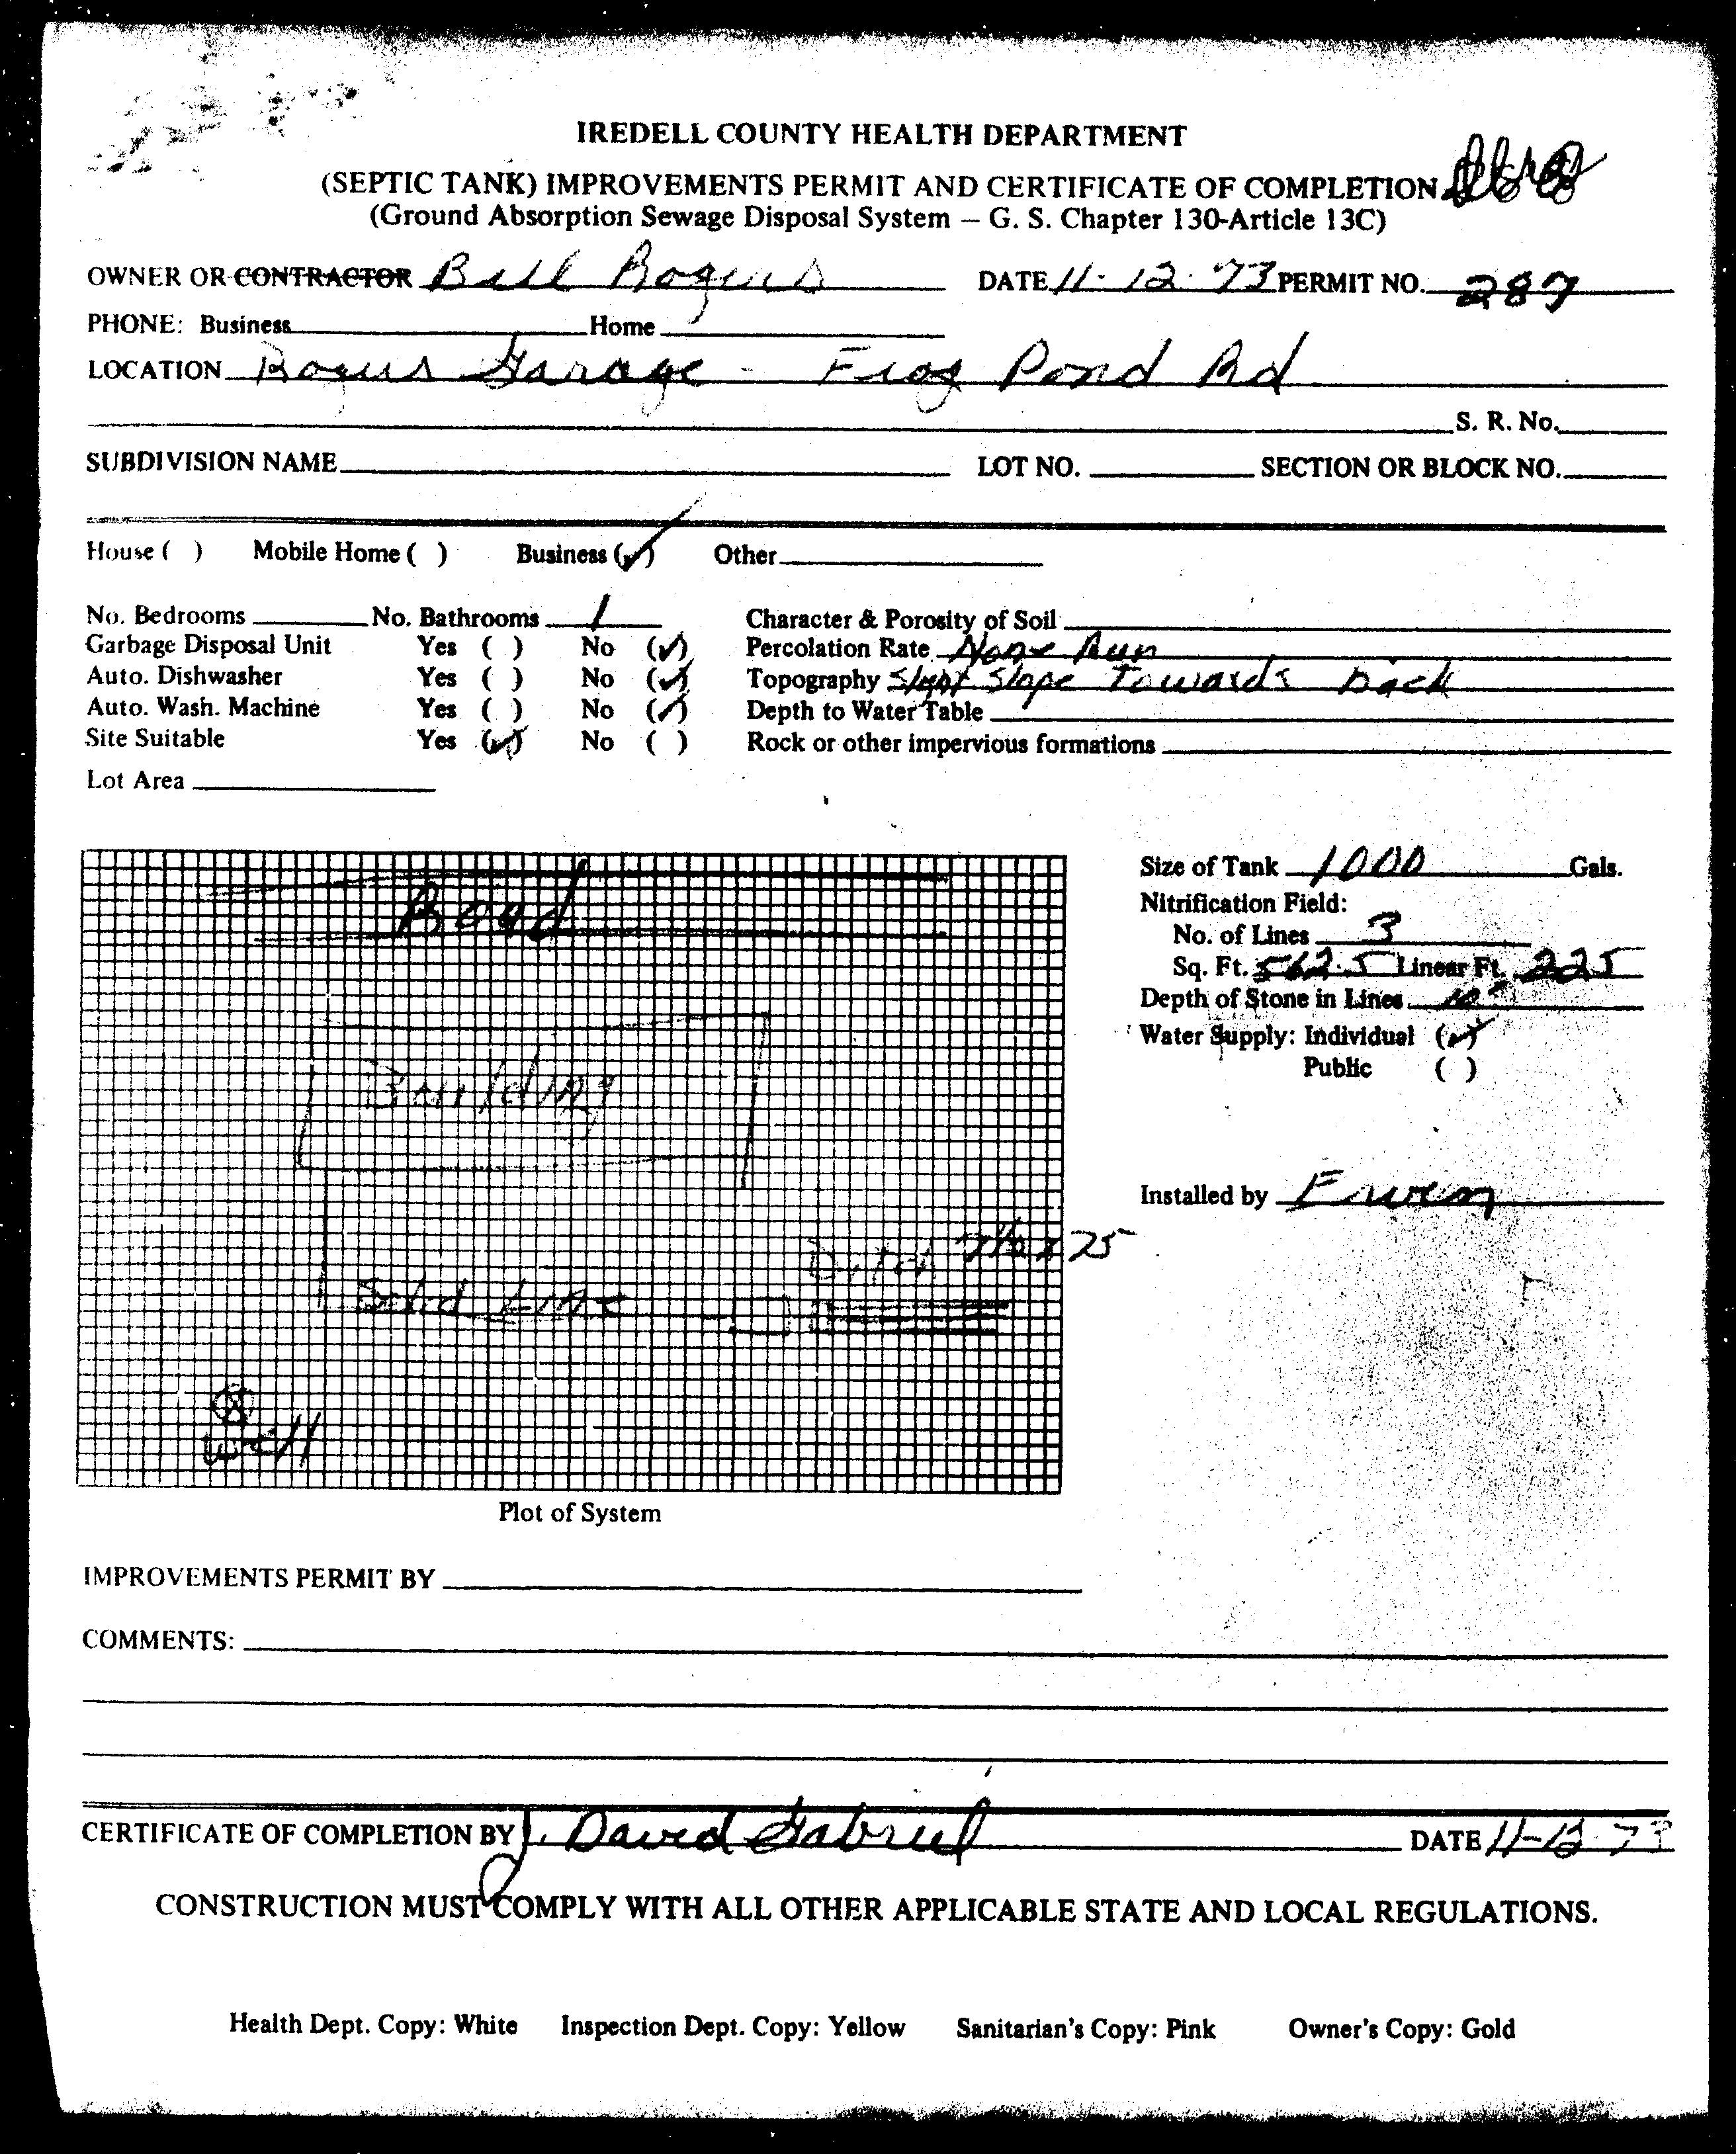 IREDELL COUNTY HEALTH DEPARTMENT
(SEPTIC TANK) IMPROVEMENTS PERMIT AND CERTIFICATE OF COMPLETION
(Ground Absorption Sewage Disposal System — G. S. Chapter 130-Article 13C)
OWNER OR CONTRACTOR Bill Rogers DATE 11-12-73 PERMIT NO. 287
PHONE: Business Home
LOCATION Rogers Garage - Frog Pond Rd
S. R. No.
SUBDIVISION NAME LOT NO. SECTION OR BLOCK NO.
House ( ) Mobile Home ( ) Business (✓) Other
No. Bedrooms No. Bathrooms 1 Character & Porosity of Soil
Garbage Disposal Unit Yes ( ) No (✓) Percolation Rate None Run
Auto. Dishwasher Yes ( ) No (✓) Topography Slight Slope Towards back
Auto. Wash. Machine Yes ( ) No (✓) Depth to Water Table
Site Suitable Yes (✓) No ( ) Rock or other impervious formations
Lot Area
Size of Tank 1000 Gals.
Road
Nitrification Field:
No. of Lines 3
Sq. Ft. 562.5 Linear Ft. 225
Depth of Stone in Lines
Water Supply: Individual (✓)
Public ( )
Building
Installed by
Ditch 75
Solid Line
Well
Plot of System
IMPROVEMENTS PERMIT BY
COMMENTS:
CERTIFICATE OF COMPLETION BY J. David Gabriel DATE 11-12-73
CONSTRUCTION MUST COMPLY WITH ALL OTHER APPLICABLE STATE AND LOCAL REGULATIONS.
Health Dept. Copy: White Inspection Dept. Copy: Yellow Sanitarian's Copy: Pink Owner's Copy: Gold